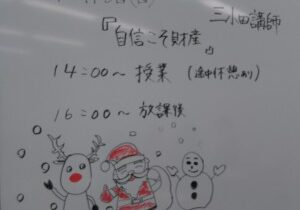 三小田講師
『自信こそ財産』
14:00～ 授業 (途中休憩あり)
16:00～ 放課後